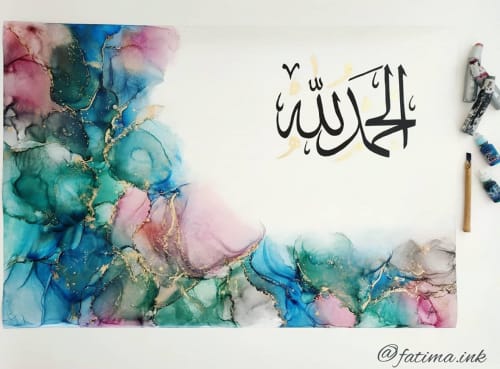 الحمد لله
@fatima.ink